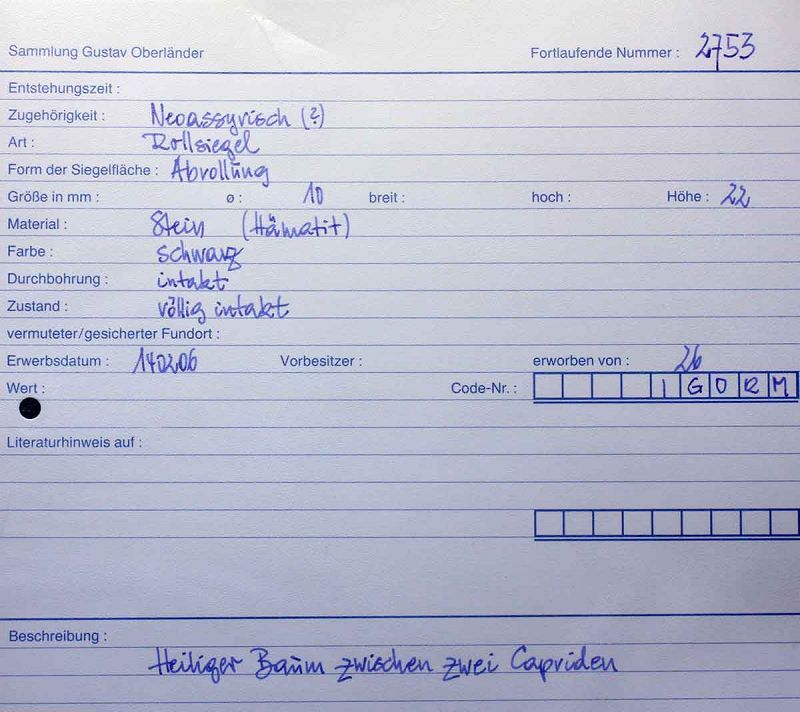 Sammlung Gustav Oberländer Fortlaufende Nummer : 2753
Entstehungszeit :
Zugehörigkeit : Neoassyrisch (?)
Art : Rollsiegel
Form der Siegelfläche : Abrollung
Größe in mm : ø : 10 breit : hoch : Höhe : 22
Material : Stein (Hämatit)
Farbe : schwarz
Durchbohrung : intakt
Zustand : völlig intakt
vermuteter/gesicherter Fundort :
Erwerbsdatum : 140206 Vorbesitzer : erworben von : 26
Wert : Code-Nr. : I G O R M
Literaturhinweis auf :
Beschreibung :
Heiliger Baum zwischen zwei Capriden